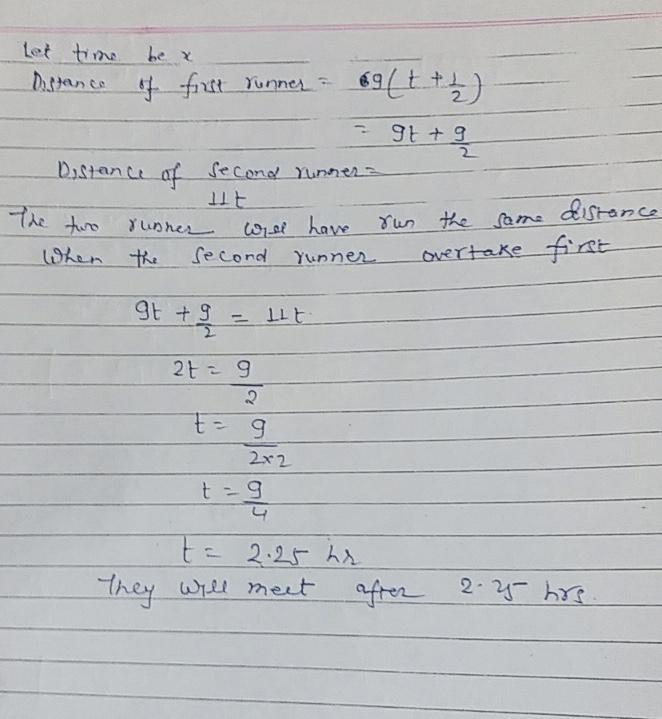 Let time be x
Distance of first runner = 9(t + 1/2)
= 9t + 9/2
Distance of second runner =
11t
The two runner will have run the same distance
When the second runner overtake first
9t + 9/2 = 11t
2t = 9/2
t = 9/2×2
t = 9/4
t = 2.25 hr
They will meet after 2.25 hrs.